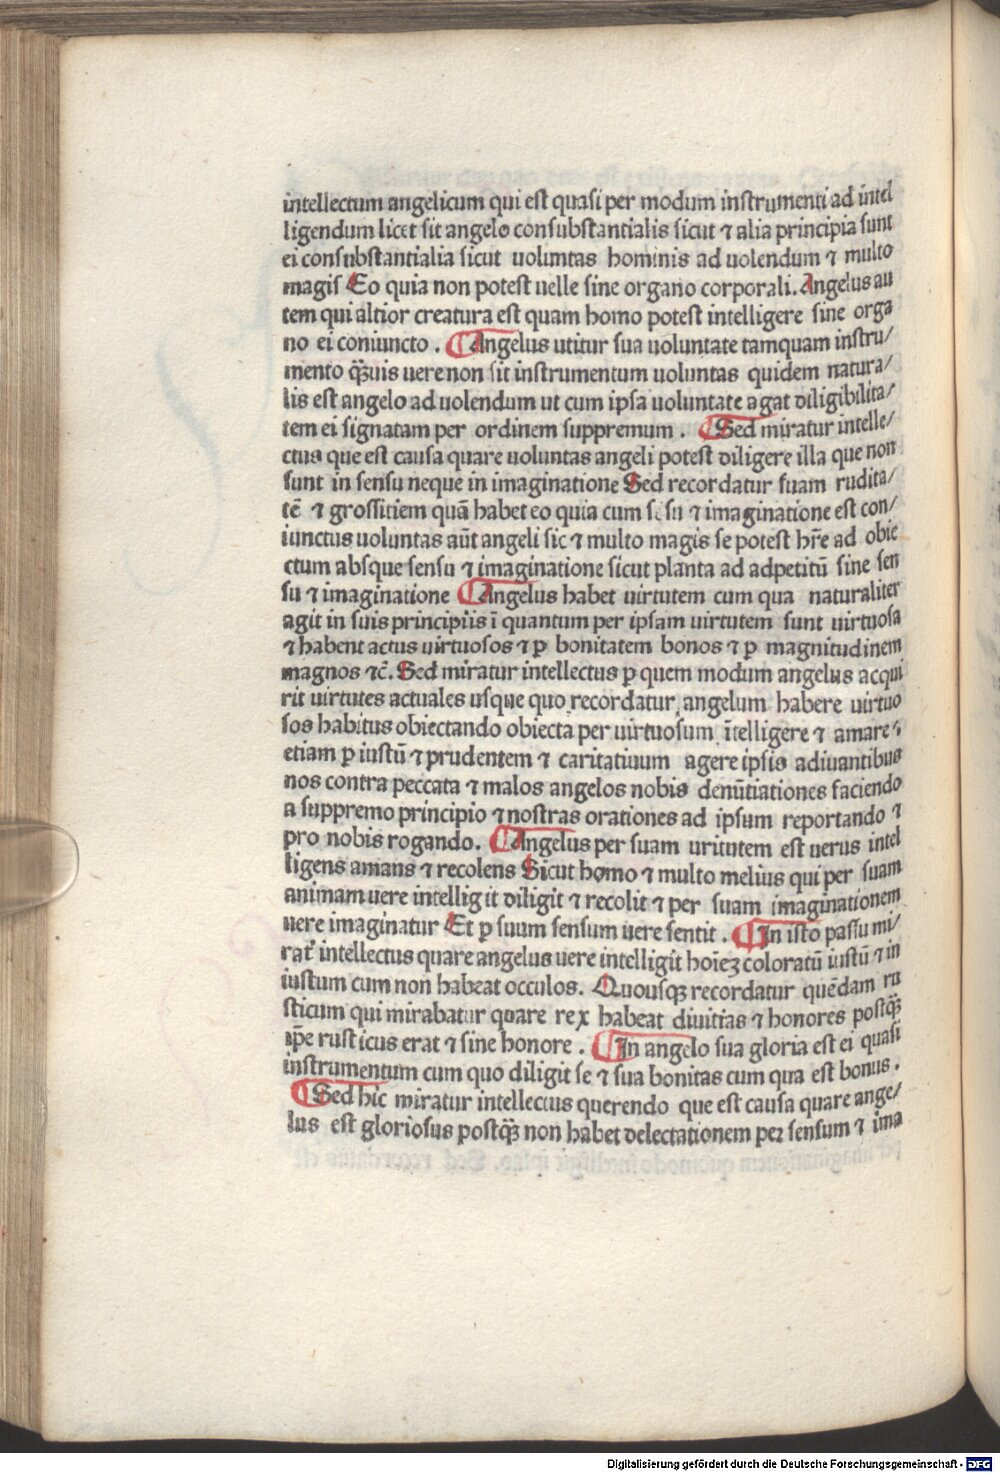 intellectum angelicum qui est quasi per modum instrumenti ad intel
ligendum licet sit angelo consubstantialis sicut ⁊ alia principia sunt
ei consubstantialia sicut uoluntas hominis ad uolendum ⁊ multo
magis Eo quia non potest uelle sine organo corporali. Angelus au
tem qui altior creatura est quam homo potest intelligere sine orga
no ei coniuncto . Angelus utitur sua uoluntate tamquam instru/
mento qȝuis uere non sit instrumentum uoluntas quidem natura/
lis est angelo ad uolendum ut cum ipsa uoluntate agat diligibilita/
tem ei signatam per ordinem suppremum . Sed miratur intelle/
ctus que est causa quare uoluntas angeli potest diligere illa que non
sunt in sensu neque in imaginatione Sed recordatur suam rudita/
tē ⁊ grossitiem quā habet eo quia cum sēsu ⁊ imaginatione est con/
iunctus uoluntas aūt angeli sic ⁊ multo magis se potest hr̄e ad obie
ctum absque sensu ⁊ imaginatione sicut planta ad adpetitū sine sen
su ⁊ imaginatione Angelus habet uirtutem cum qua naturaliter
agit in suis principiis ī quantum per ipsam uirtutem sunt uirtuosa
⁊ habent actus uirtuosos ⁊ ꝑ bonitatem bonos ⁊ ꝑ magnitudinem
magnos ⁊c̄. Sed miratur intellectus ꝑ quem modum angelus acqui
rit uirtutes actuales usque quo recordatur angelum habere uirtuo
sos habitus obiectando obiecta per uirtuosum ītelligere ⁊ amare ⁊
etiam ꝑ iustū ⁊ prudentem ⁊ caritatiuum agere ipsis adiuuantibus
nos contra peccata ⁊ malos angelos nobis denūtiationes faciendo
a suppremo principio ⁊ nostras orationes ad ipsum reportando ⁊
pro nobis rogando. Angelus per suam uritutem est uerus intel
ligens amans ⁊ recolens Sicut homo ⁊ multo melius qui per suam
animam uere intelligit diligit ⁊ recolit ⁊ per suam imaginationem
uere imaginatur Et ꝑ suum sensum uere sentit . In isto passu mi/
rat᷑ intellectus quare angelus uere intelligit hoīeȝ coloratū iustū ⁊ in
iustum cum non habeat occulos. Quousqȝ recordatur quēdam ru
sticum qui mirabatur quare rex habeat diuitias ⁊ honores postqȝ
ip̄e rusticus erat ⁊ sine honore . In angelo sua gloria est ei quasi
instrumentum cum quo diligit se ⁊ sua bonitas cum qua est bonus.
Sed hic miratur intellectus querendo que est causa quare ange/
lus est gloriosus postqȝ non habet delectationem per sensum ⁊ ima
Digitalisierung gefördert durch die Deutsche Forschungsgemeinschaft - DFG